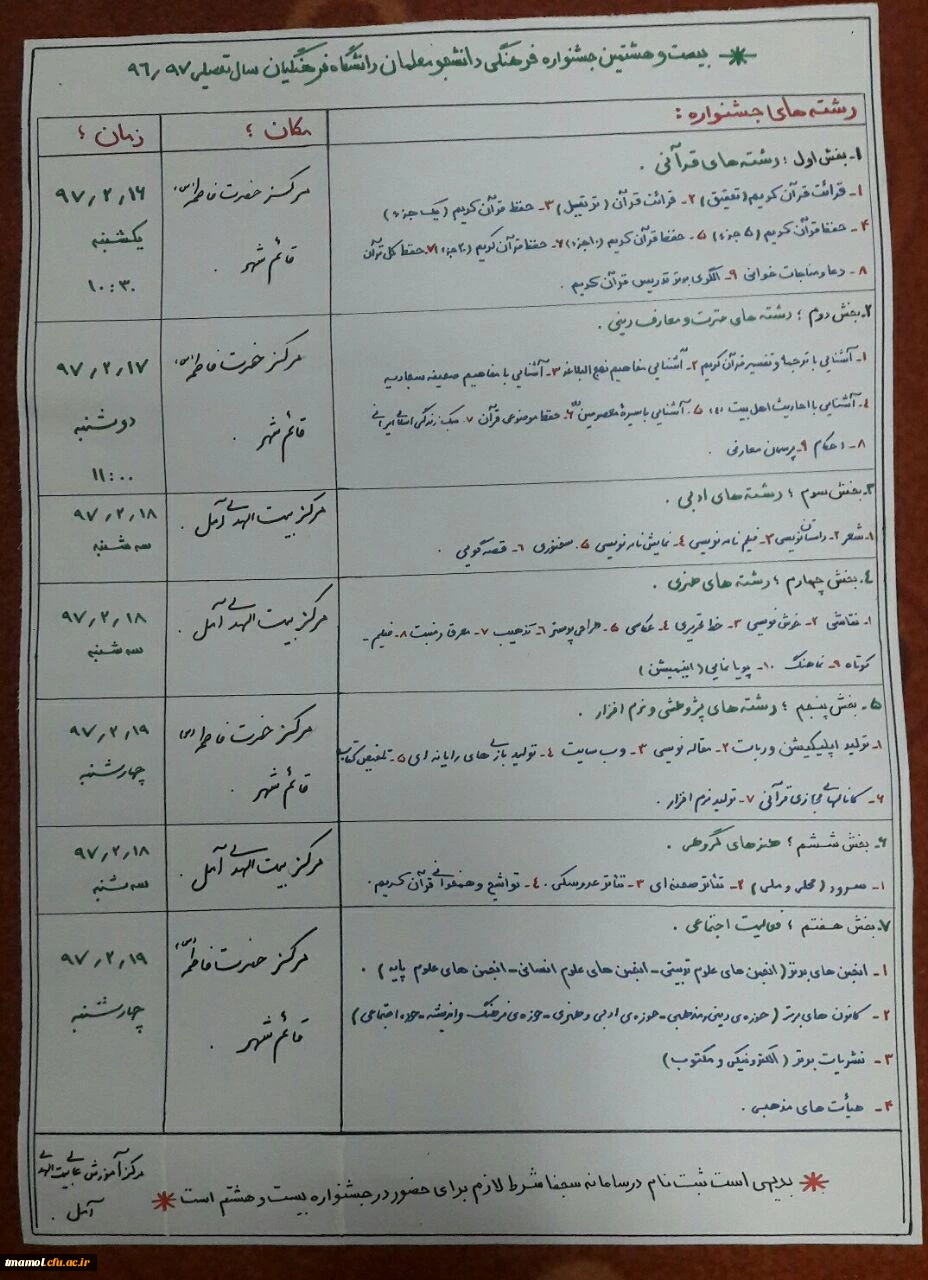 بیست و هشتمین جشنواره فرهنگی دانشجو معلمان دانشگاه فرهنگیان سال تحصیلی ۹۷ر۹۶
رشته های جشنواره :
مکان ؛
زمان ؛
۱- بخش اول ؛ رشته های قرآنی .
۱- قرائت قرآن کریم (تحقیق) ۲- قرائت قرآن (ترتیل) ۳- حفظ قرآن کریم (یک جزء)
۴- حفظ قرآن کریم (۵ جزء) ۵- حفظ قرآن کریم (۱۰جزء) ۶- حفظ قرآن کریم (۲۰جزء) ۷- حفظ کل قرآن
۸- دعا و مناجات خوانی ۹- الگوی برتر تدریس قرآن کریم .
مرکز حضرت فاطمه (س)
قائم شهر .
۹۷٫۲٫۱۶
یکشنبه
۱۰:۳۰
۲- بخش دوم ؛ رشته های عترت و معارف دینی .
۱- آشنایی با ترجمه و تفسیر قرآن کریم ۲- آشنایی مفاهیم نهج البلاغه ۳- آشنایی با مفاهیم صحیفه سجادیه
۴- آشنایی با احادیث اهل بیت (ع) ۵- آشنایی با سیرهٔ معصومین (ع) ۶- حفظ موضوعی قرآن ۷- سبک زندگی اسلامی ایرانی
۸- احکام ۹- پرسمان معارفی .
مرکز حضرت فاطمه (س)
قائم شهر .
۹۷٫۲٫۱۷
دوشنبه
۱۱:۰۰
۳- بخش سوم ؛ رشته های ادبی .
۱- شعر ۲- داستان نویسی ۳- فیلم نامه نویسی ۴- نمایش نامه نویسی ۵- سخنوری ۶- قصه گویی .
مرکز بیت الهدی آمل .
۹۷٫۲٫۱۸
سه شنبه
۴- بخش چهارم ؛ رشته های هنری .
۱- نقاشی ۲- خوش نویسی ۳- خط تحریری ۴- عکاسی ۵- طراحی پوستر ۶- تذهیب ۷- معرق و منبت ۸- فیلم -
کوتاه ۹- نماهنگ ۱۰- پویا نمایی (انیمیشن)
مرکز بیت الهدی آمل .
۹۷٫۲٫۱۸
سه شنبه
۵- بخش پنجم ؛ رشته های پژوهشی و نرم افزار .
۱- تولید اپلیکیشن و ربات ۲- مقاله نویسی ۳- وب سایت ۴- تولید بازی های رایانه ای ۵- تلخیص کتاب
۶- کانالهای مجازی قرآنی ۷- تولید نرم افزار .
مرکز حضرت فاطمه (س)
قائم شهر .
۹۷٫۲٫۱۹
چهارشنبه
۶- بخش ششم ؛ هنرهای گروهی .
۱- سرود (محلی و ملی) ۲- تئاتر صحنه ای ۳- تئاتر عروسکی . ۴- تواشیح و همخوانی قرآن کریم .
مرکز بیت الهدی آمل .
۹۷٫۲٫۱۸
سه شنبه
۷- بخش هفتم ؛ فعالیت اجتماعی .
۱- انجمن های برتر (انجمن های علوم تربیتی - انجمن های علوم انسانی - انجمن های علوم پایه) .
۲- کانون های برتر (حوزه ی دینی و مذهبی - حوزه ی ادبی و هنری - حوزه ی فرهنگ و اندیشه - حوزه اجتماعی)
۳- نشریات برتر (الکترونیکی و مکتوب)
۴- هیأت های مذهبی .
مرکز حضرت فاطمه (س)
قائم شهر .
۹۷٫۲٫۱۹
چهارشنبه
بدیهی است ثبت نام در سامانه سجفا شرط لازم برای حضور در جشنواره بیست و هشتم است
مرکز آموزش عالی بیت الهدی
آمل .
tmamol.cfu.ac.ir